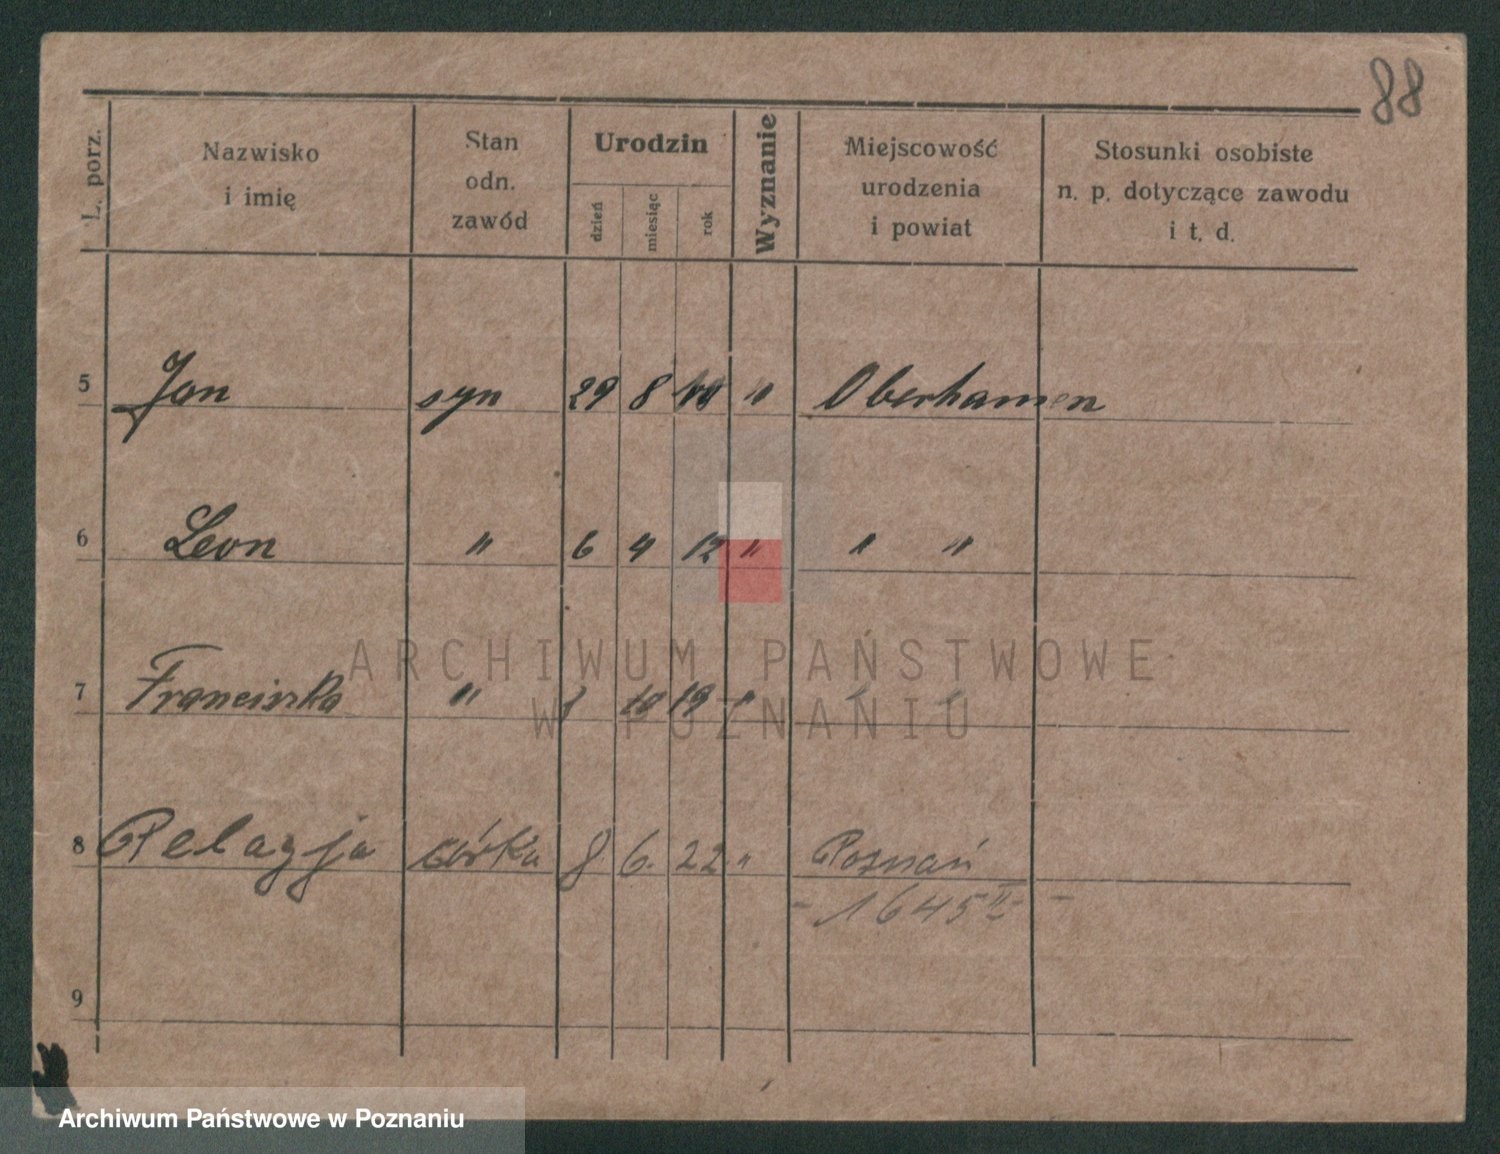 88
L. porz.
Nazwisko
i imię
Stan
odn.
zawód
Urodzin
dzień
miesiąc
rok
Wyznanie
Miejscowość
urodzenia
i powiat
Stosunki osobiste
n. p. dotyczące zawodu
i t. d.
5 Jan syn 29 8 " Oberhamen
6 Leon " 6 4 12 " " "
7 Franciszka " 1 10 19 " " "
8 Pelagja córka 8. 6. 22 " Poznań
- 1645 II - -
9
ARCHIWUM PAŃSTWOWE
W POZNANIU
Archiwum Państwowe w Poznaniu